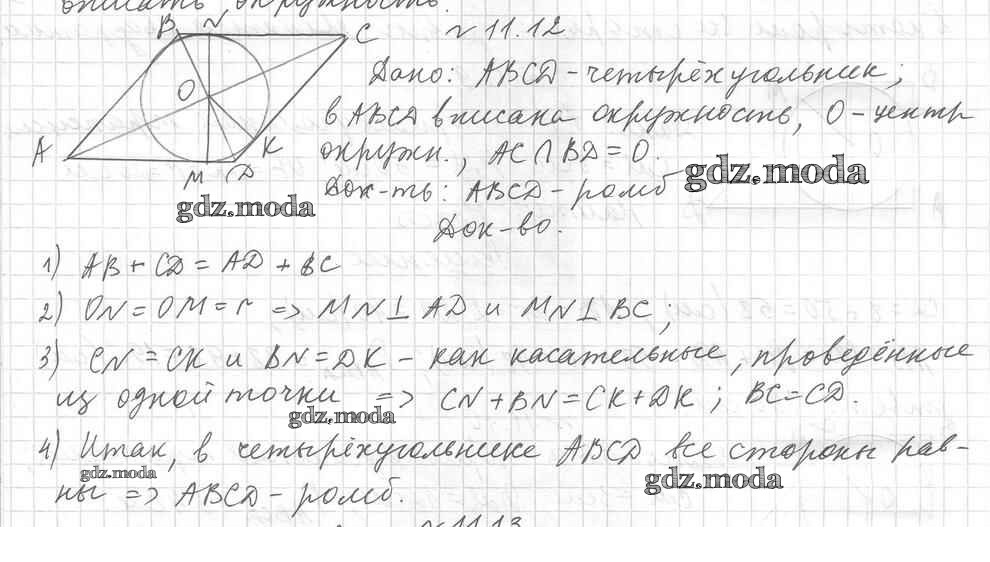 вписать окружность.
B N C
O
A M D K
№ 11.12
Дано: ABCD - четырёхугольник;
в ABCD вписана окружность, O - центр
окружн., AC ∩ BD = O.
Док-ть: ABCD - ромб
Док-во.
gdz.moda
gdz.moda
1) AB + CD = AD + BC
2) ON = OM = r => MN ⊥ AD и MN ⊥ BC;
3) CN = CK и BN = DK - как касательные, проведённые
из одной точки => CN + BN = CK + DK; BC = CD.
gdz.moda
4) Итак, в четырёхугольнике ABCD все стороны рав-
ны => ABCD - ромб.
gdz.moda
gdz.moda
№ 11.13